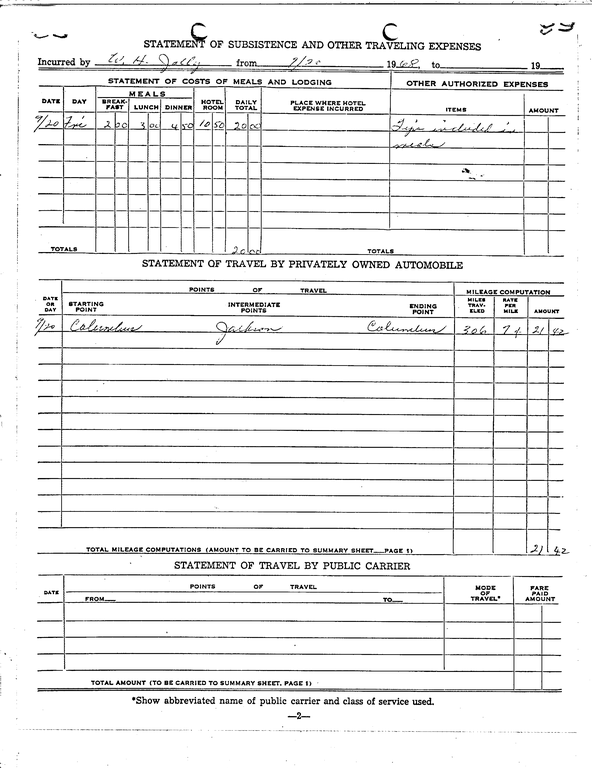 STATEMENT OF SUBSISTENCE AND OTHER TRAVELING EXPENSES
Incurred by W. H. Jolly from 9/20 1968, to 19
STATEMENT OF COSTS OF MEALS AND LODGING OTHER AUTHORIZED EXPENSES
MEALS
DATE DAY BREAK-FAST LUNCH DINNER HOTEL ROOM DAILY TOTAL PLACE WHERE HOTEL EXPENSE INCURRED ITEMS AMOUNT
9/20 Fri 2 00 3 00 4 50 10 50 20 00 Tips included in
meals
TOTALS 20 00 TOTALS
STATEMENT OF TRAVEL BY PRIVATELY OWNED AUTOMOBILE
POINTS OF TRAVEL MILEAGE COMPUTATION
DATE OR DAY STARTING POINT INTERMEDIATE POINTS ENDING POINT MILES TRAV-ELED RATE PER MILE AMOUNT
9/20 Columbus Jackson Columbus 306 7¢ 21 42
TOTAL MILEAGE COMPUTATIONS (AMOUNT TO BE CARRIED TO SUMMARY SHEET—PAGE 1) 21 42
STATEMENT OF TRAVEL BY PUBLIC CARRIER
POINTS OF TRAVEL
DATE FROM— TO— MODE OF TRAVEL* FARE PAID AMOUNT
TOTAL AMOUNT (TO BE CARRIED TO SUMMARY SHEET, PAGE 1)
*Show abbreviated name of public carrier and class of service used.
—2—